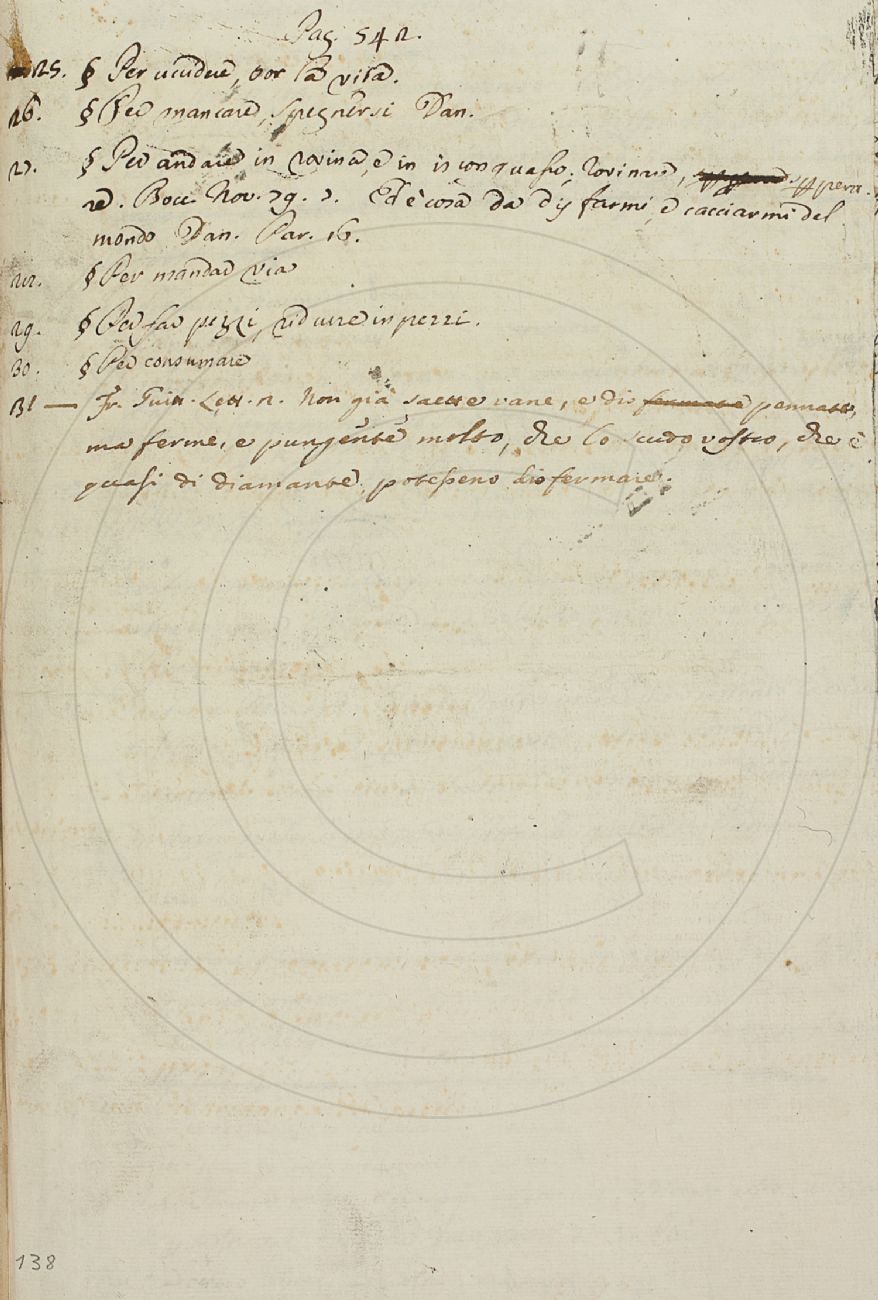 Pag. 542.
25. § Per uccidere, tor la vita.
26. § Per mancare, spegnersi Dan.
27. § Per andare in rovina, e in isconquasso; Rovinare,
re. Bocc. Nov. 79. 7. Ed è cosa da disfarmi, e cacciarmi del
mondo Dan. Par. 16.
28. § Per mandar via
29. § Per far pezzi, ridurre in pezzi.
30. § Per consumare
31 — Fr. Guitt. Lett. 2. Non già saette vane, e dis pennate,
ma ferme, e pungente molto, che lo scudo vostro, che è
quasi di diamante, potesseno disfermare.
138